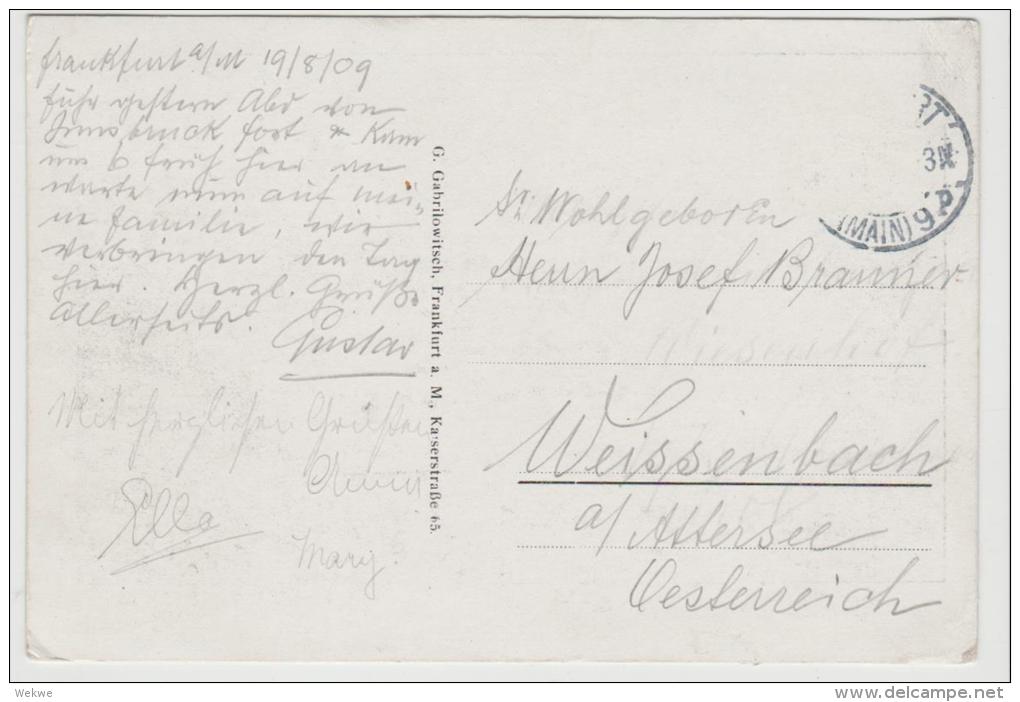 Frankfurt a/M 19/8/09
fuhr gestern Abd von
Innsbruck fort & kam
um 6 früh hier an
warte nun auf mei-
ne Familie, wir
verbringen den Tag
hier. Herzl. Grüße
Allerseits.
Gustav
Mit herzlichen Grüßen
Ella
Mary.
G. Gabrilowitsch, Frankfurt a. M., Kaiserstraße 65.
RT
3N
9P
(MAIN)
Sr Wohlgeboren
Herrn Josef Brauner
Wiesenhof
Weissenbach
a/ Attersee
Oesterreich
Wekwe
www.delcampe.net